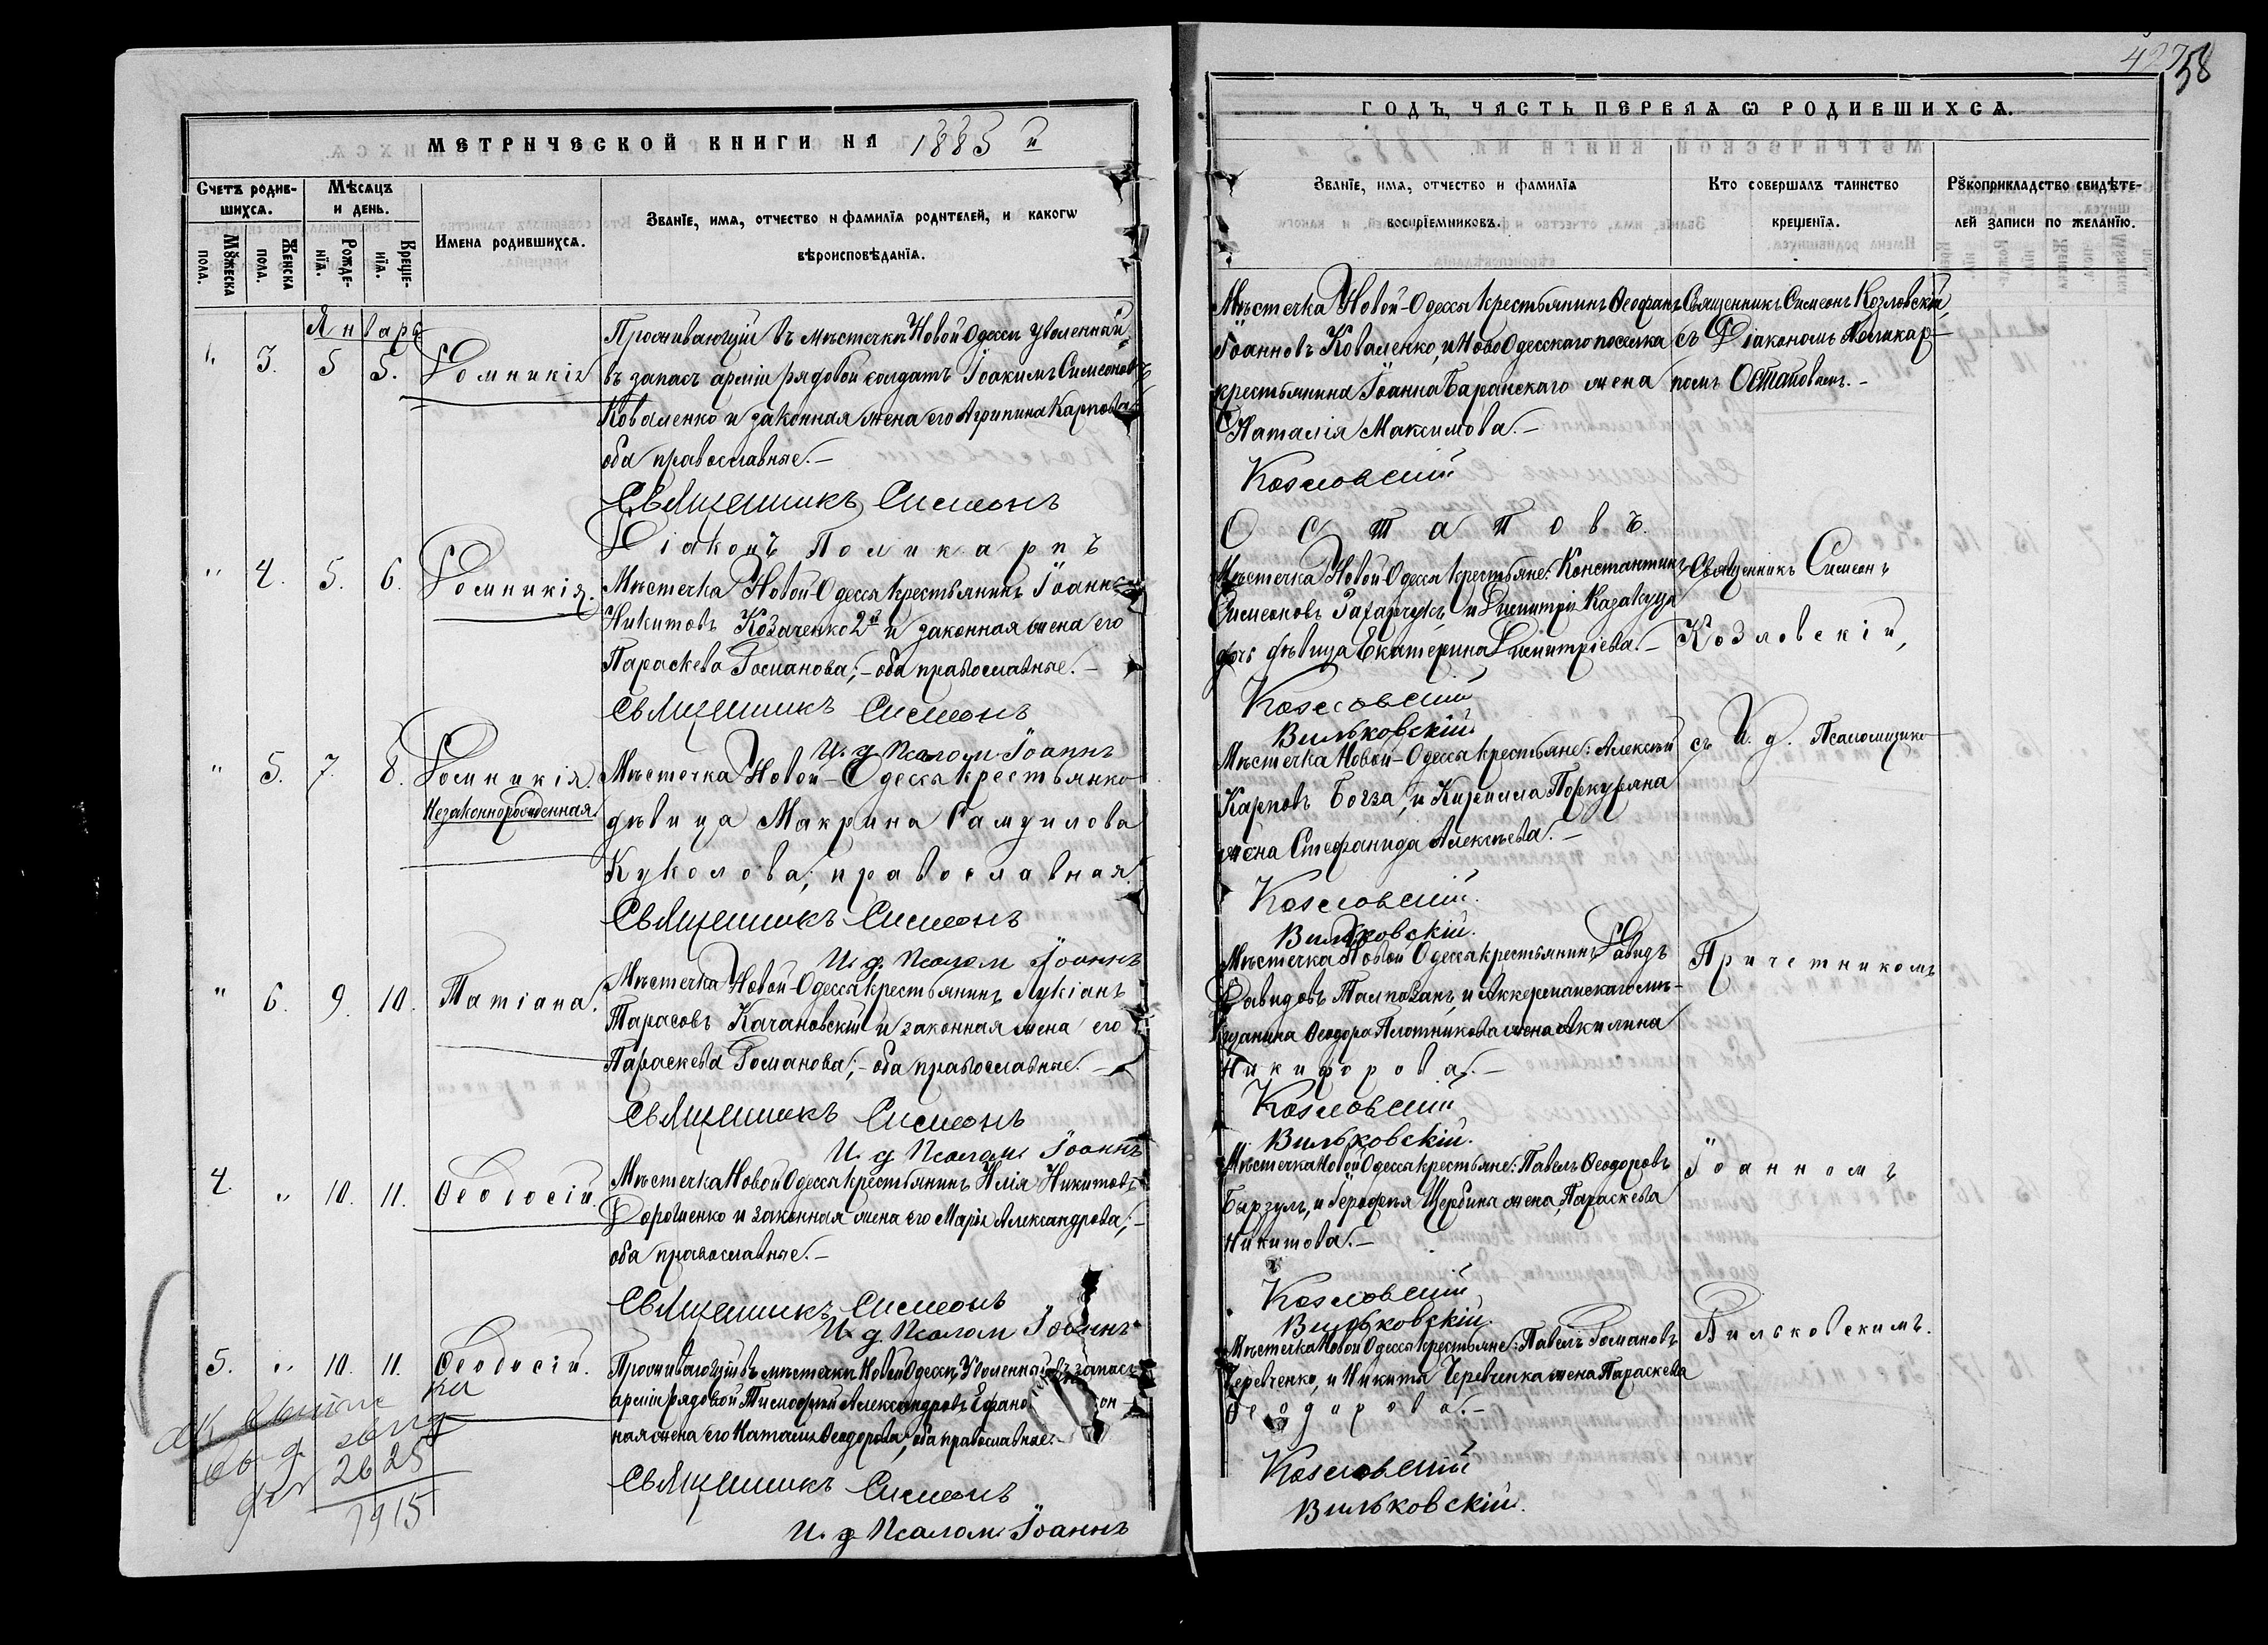 МЕТРИЧЕСКОЙ КНИГИ НА 1885 й
Счетъ родив-
шихся.
Мѣсяцъ
и день.
Имена родившихся.
Званїе, имя, отчество и фамилїя родителей, и какогѡ
вѣроисповѣданїя.
Мꙋжеска
пола.
Женска
пола.
Рожде-
нїя.
Креще-
нїя.
Января
" 3. 5 5. Домникія
Проживающій въ мѣстечкѣ Новой Одессѣ уволенный
въ запасъ арміи рядовой солдатъ Іоакимъ Симеоновъ
Коваленко и законная жена его Агрипина Карпова
оба православные.–
Священникъ Симеонъ
Діаконъ Поликарпъ
" 4. 5. 6. Домникія.
Мѣстечка Новой-Одессы крестьянинъ Іоаннъ
Никитовъ Козаченко 2й и законная жена его
Параскева Романова;–оба православные.–
Священникъ Симеонъ
И. д. Псалом. Іоаннъ
" 5. 7. 8. Домникія.
Незаконнорожденная.
Мѣстечка Новой-Одессы крестьянка
дѣвица Макрина Самуилова
Куколова; православная.
Священникъ Симеонъ
И. д. Псалом Іоаннъ
" 6. 9. 10. Татіана.
Мѣстечка Новой-Одессы крестьянинъ Лукіанъ
Тарасовъ Качановскій и законная жена его
Параскева Романова;–оба православные.–
Священникъ Симеонъ
И. д. Псалом. Іоаннъ
4. " 10. 11. Ѳеодосій.
Мѣстечка Новой Одессы крестьянинъ Илія Никитовъ
Дорошенко и законная жена его Марія Александрова;–
оба православные.–
Священникъ Симеонъ
И. д. Псалом Іоаннъ
5. " 10. 11. Ѳеодосій.
Проживающій въ мѣстечкѣ Новой Одессѣ Уволенный въ запасъ
арміи рядовой Тимофей Александровъ
ная жена его Наталія Ѳеодорова; оба православные.–
Священникъ Симеонъ
И. д. Псалом. Іоаннъ
26 25
1915
58
ГОДЪ, ЧАСТЬ ПЕРВАЯ Ѡ РОДИВШИХСЯ.
Званїе, имя, отчество и фамилїя
воспрїемниковъ.
Кто совершалъ таинство
крещенїя.
Рꙋкоприкладство свидѣте-
лей записи по желанїю.
Мѣстечка Новой-Одессы крестьянинъ Ѳеофанъ
Іоанновъ Коваленко, и Ново Одесскаго поселка
крестьянина Іоанна Баранскаго жена
Наталія Максимова.–
Козловскій
Остаповъ
Священникъ Симеонъ Козловскій,
съ Діакономъ Поликар-
помъ Остаповымъ.–
Мѣстечка Новой Одессы крестьяне: Константинъ
Симеоновъ Захарчукъ, и Димитрія Казакуца
дочь дѣвица Екатерина Димитріева.–
Козловскій
Вильковскій.
Священникъ Симеонъ
Козловскій,
Мѣстечка Новой-Одессы крестьяне: Алексѣй
Карповъ Богза, и Кирилла Поркуряна
жена Стефанида Алексѣева.–
Козловскій.
Вильковскій.
съ И. д. Псаломщика
Мѣстечка Новой Одессы крестьянинъ Давидъ
Давидовъ Тамповань, и Аккерманскаго мѣ-
щанина Ѳеодора Плотникова жена Акилина
Никифорова.–
Козловскій
Вильковскій.
Причетникомъ
Мѣстечка Новой Одессы крестьяне: Павелъ Ѳеодоровъ
Бырзулъ, и Іероѳея Щербина жена Параскева
Никитова.–
Козловскій
Вильковскій.
Іоанномъ
Мѣстечка Новой Одессы крестьяне: Павелъ Романовъ
Черевченко, и Никиты Черевченка жена Параскева
Ѳеодорова.–
Козловскій
Вильковскій.
Вильковскимъ.